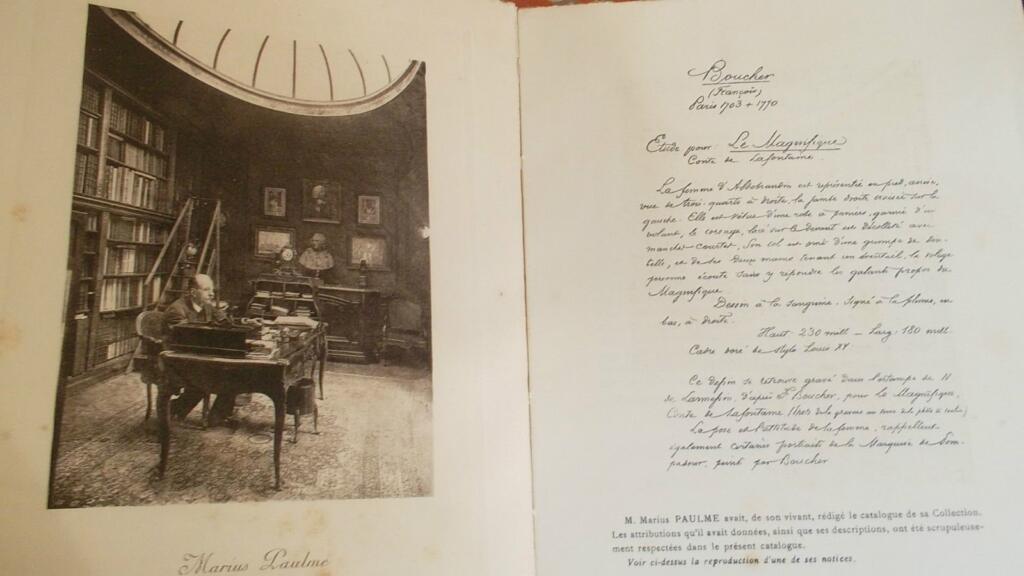 Marius Paulme
Boucher
(François)
Paris 1703 + 1770
Etude pour: Le Magnifique
Conte de Lafontaine.
La femme d'Aldobrandin est représentée en pied, assise,
vue de trois-quarts à droite, la jambe droite croisée sur la
gauche. Elle est vêtue d'une robe à paniers, garnie d'un
volant, le corsage, lacé sur le devant est décolleté avec
manches courtes. Son col est orné d'une guimpe de den-
telle, et de ses deux mains tenant un éventail, la
personne écoute sans y répondre les galants propos du
Magnifique.
Dessin à la sanguine. Signé à la plume, en
bas, à droite.
Haut: 230 mill — Larg: 180 mill.
Cadre doré de style Louis XV.
Ce dessin se retrouve gravé dans l'estampe de N
de Larmessin, d'après F Boucher, pour Le Magnifique,
Conte de Lafontaine
La pose et l'attitude de la femme, rappellent
également certains portraits de la Marquise de Pom-
padour, peint par Boucher
M. Marius PAULME avait, de son vivant, rédigé le catalogue de sa Collection.
Les attributions qu'il avait données, ainsi que ses descriptions, ont été scrupuleuse-
ment respectées dans le présent catalogue.
Voir ci-dessus la reproduction d'une de ses notices.